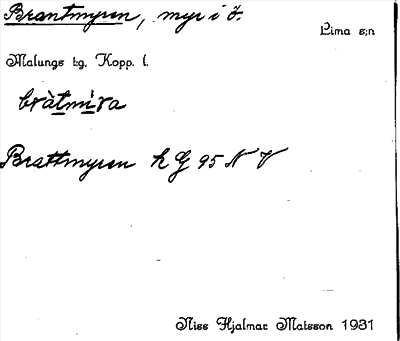 Brantmyren, myr i ö.
Lima s:n
Malungs tg. Kopp. l.
bràtmira
Brattmyren k G 95 N V
Niss Hjalmar Matsson 1931